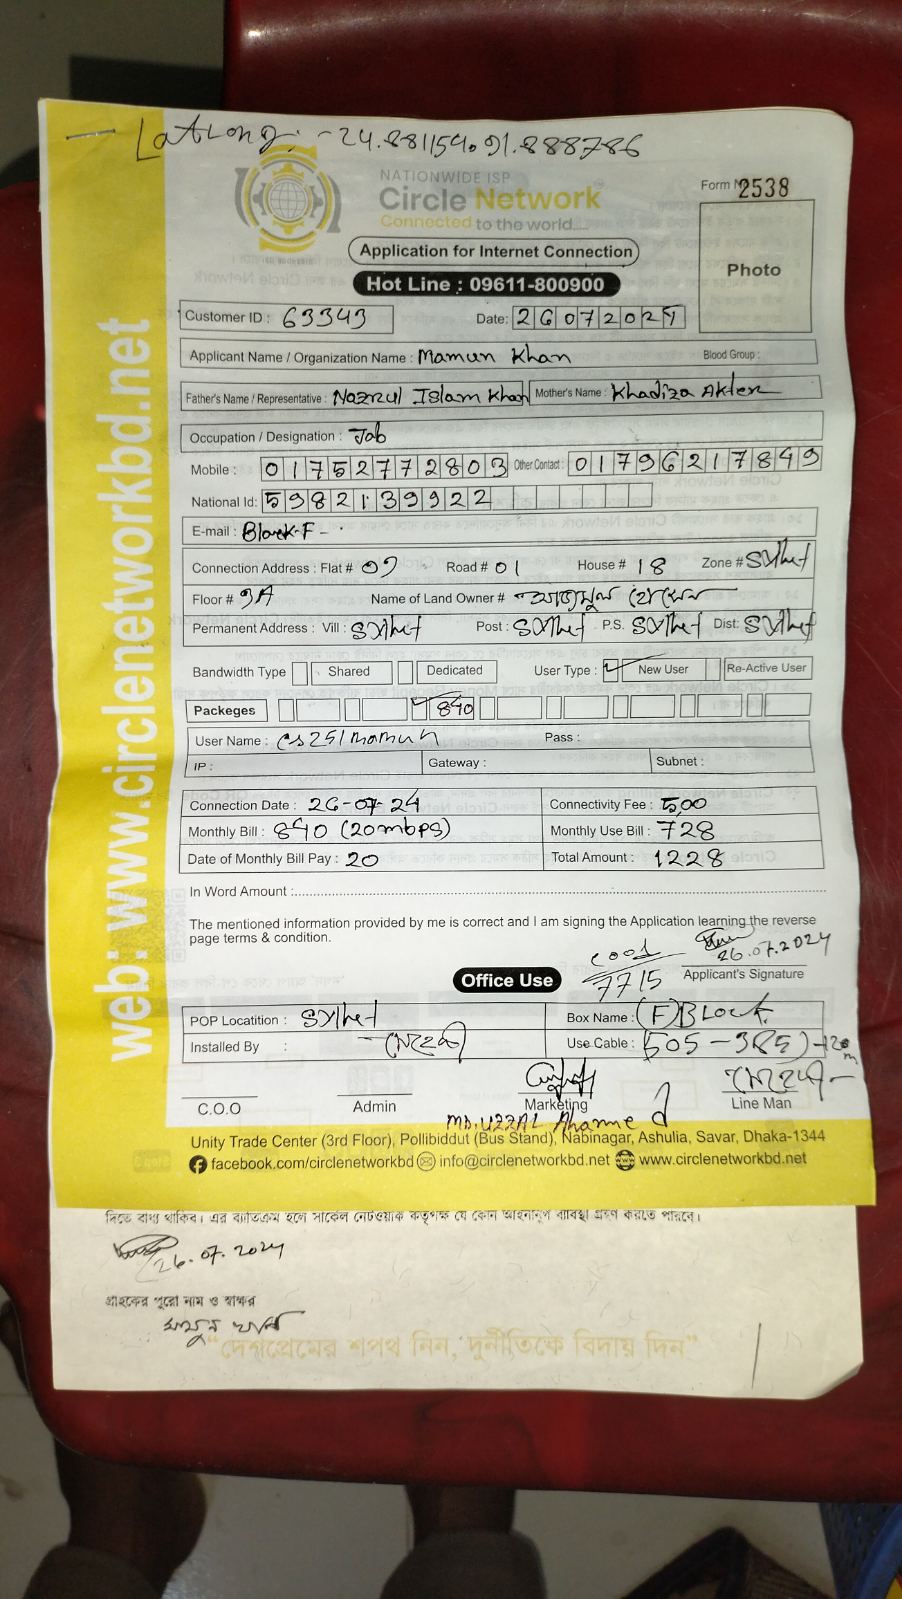 LatLong:-24.881154, 91.888786
NATIONWIDE ISP
Circle Network
Connected to the world....
Form N 2538
Application for Internet Connection
Photo
Hot Line : 09611-800900
Customer ID : 63343 Date: 26072024
Applicant Name / Organization Name : Mamun Khan Blood Group :
Father's Name / Representative : Nazrul Islam Khan Mother's Name : Khadiza Akter
Occupation / Designation : Job
Mobile : 01752772803 Other Contact : 01796217849
National Id: 5982139922
E-mail : Block-F -
Connection Address : Flat # 09 Road # 01 House # 18 Zone # Sylhet
Floor # 9A Name of Land Owner #
Permanent Address : Vill : Sylhet Post : Sylhet P.S. Sylhet Dist: Sylhet
Bandwidth Type Shared Dedicated User Type : New User Re-Active User
Packeges 840
User Name : cs251mamun Pass :
IP : Gateway : Subnet :
Connection Date : 26-07-24 Connectivity Fee : 500
Monthly Bill : 840 (20mbps) Monthly Use Bill : 728
Date of Monthly Bill Pay : 20 Total Amount : 1228
In Word Amount :
The mentioned information provided by me is correct and I am signing the Application learning the reverse
page terms & condition.
26.07.2024
7715 Applicant's Signature
Office Use
POP Locatition : Sylhet Box Name : (F) Block
Installed By : Use Cable : (505-385)-120m
C.O.O Admin Marketing Line Man
Md. Uzzal Ahamed
Unity Trade Center (3rd Floor), Pollibiddut (Bus Stand), Nabinagar, Ashulia, Savar, Dhaka-1344
facebook.com/circlenetworkbd info@circlenetworkbd.net www.circlenetworkbd.net
web: www.circlenetworkbd.net
দিতে বাধ্য থাকিব। এর ব্যতিক্রম হলে সার্কেল নেটওয়ার্ক কতৃপক্ষ যে কোন আইনানুগ ব্যাবস্থা গ্রহণ করতে পারবে।
26.07.2024
গ্রাহকের পুরো নাম ও স্বাক্ষর
মামুন খান
“দেশপ্রেমের শপথ নিন, দুর্নীতিকে বিদায় দিন”